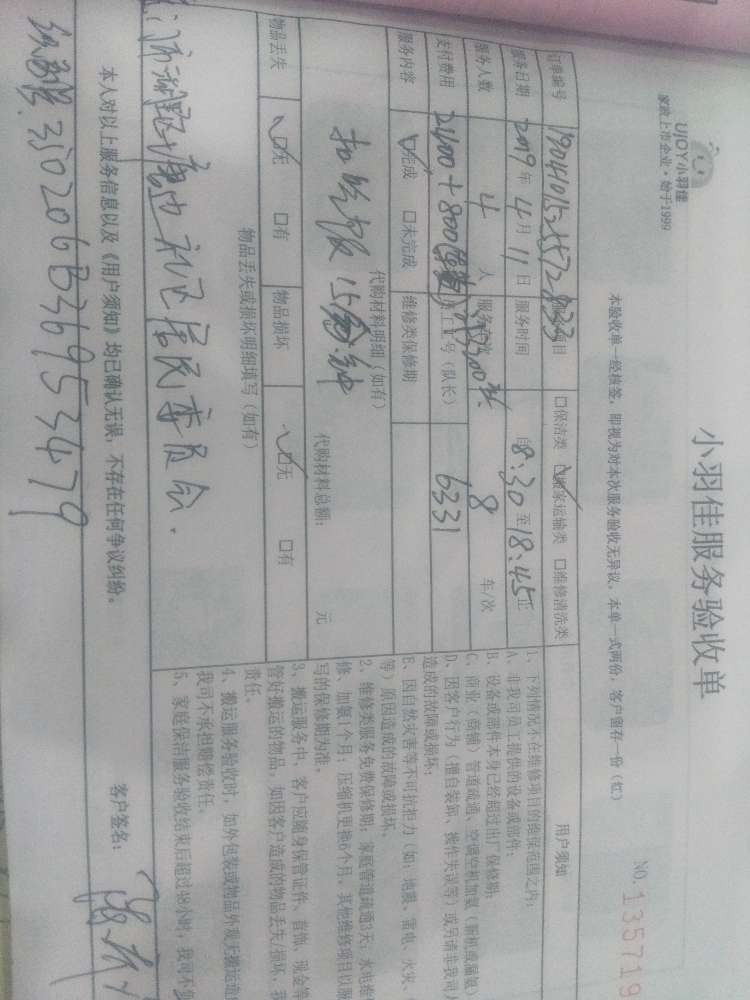 UJOY小羽佳
家政上市企业·始于1999
小羽佳服务验收单
NO.135719
本验收单一经核签，即视为对本次服务验收无异议，本单一式两份，客户留存一份（红）
订单编号
项目 □保洁类 ☑搬家运输类 □维修清洗类
服务日期 2019年4月11日 服务时间 自8:30至18:45止
服务人数 4人 服务车次 8 车/次
支付费用 2400+800 工号（队长） 6331
服务内容 ☑完成 □未完成 维修类保修期
代购材料明细（如有）
扣吃饭15分钟
代购材料总额： 元
物品丢失 ☑无 □有 物品损坏 ☑无 □有
物品丢失或损坏明细填写（如有）
社区居民委员会.
本人对以上服务信息以及《用户须知》均已确认无误，不存在任何争议纠纷。 客户签名：
350206B36953479
用户须知
1、下列情况不在维修项目的维保范围之内：
A、非我司员工提供的设备或部件；
B、设备或部件本身已经超过出厂保修期；
C、商业（商铺）管道疏通、空调空机加氨（新机或漏氨）
D、因客户行为（擅自装卸、操作失误等）或另请非我司
造成的故障或损坏；
E、因自然灾害等不可抗拒力（如：地震、雷电、火灾、
等）原因造成的故障或损坏。
2、维修类服务免费保修期：家庭管道疏通3天，水电维
修、加氨1个月；压缩机更换6个月，其他维修项目以服
写的保修期为准。
3、搬运服务中，客户应随身保管证件、首饰、现金等
管好搬运的物品，如因客户造成的物品丢失/损坏，我
责任。
4、搬运服务验收时，如外包装或物品外观无搬运造
我司不承担赔偿责任。
5、家庭保洁服务验收结束后超过48小时，我司不